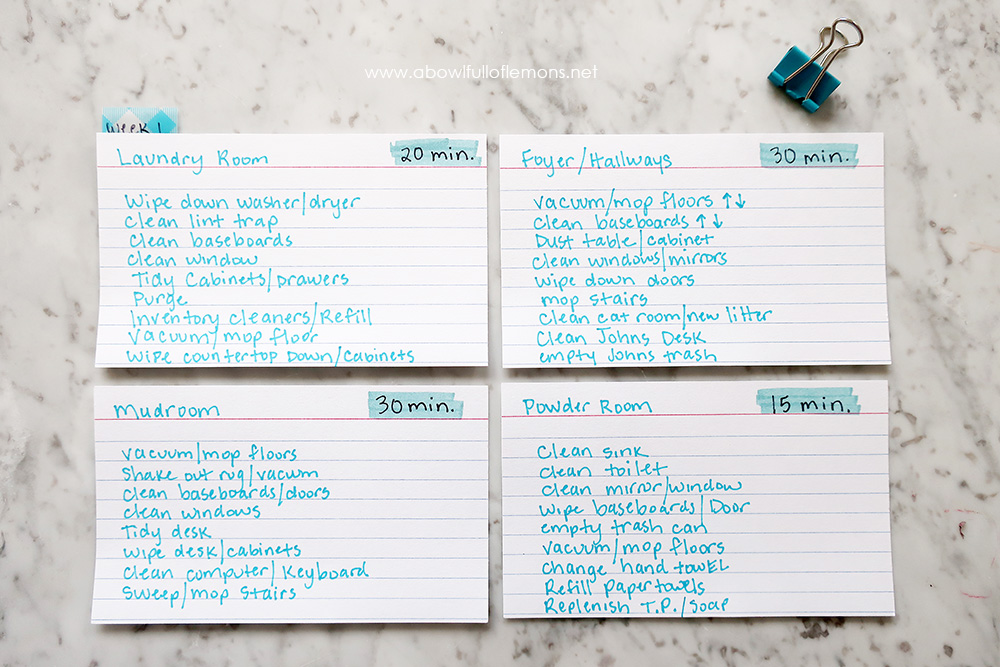 www.abowlfulloflemons.net
Week 1
Laundry Room
20 min.
Wipe down washer/dryer
Clean lint trap
Clean baseboards
Clean window
Tidy Cabinets/Drawers
Purge
Inventory cleaners/Refill
Vacuum/mop floor
Wipe countertop Down/Cabinets
Foyer/Hallways
30 min.
Vacuum/mop floors ↑↓
Clean baseboards ↑↓
Dust table/cabinet
Clean windows/mirrors
Wipe down doors
mop stairs
Clean cat room/new litter
Clean Johns Desk
empty Johns trash
Mudroom
30 min.
Vacuum/mop floors
Shake out rug/vacum
Clean baseboards/doors
Clean windows
Tidy desk
Wipe desk/cabinets
Clean computer/Keyboard
Sweep/mop Stairs
Powder Room
15 min.
Clean sink
Clean toilet
Clean mirror/window
Wipe baseboards/Door
empty trash can
Vacuum/mop floors
Change hand towEL
Refill papertowels
Replenish T.P./Soap